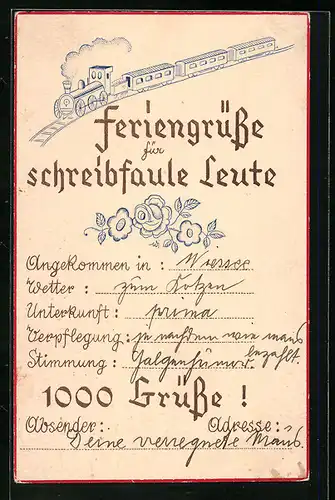 Feriengrüße
für
schreibfaule Leute
Angekommen in : Wiessee
Wetter : zum Kotzen
Unterkunft : prima
Verpflegung : je nachdem wie mans
bezahlt.
Stimmung : Galgenhumor
1000 Grüße !
Absender : Adresse :
Deine verregnete Maus